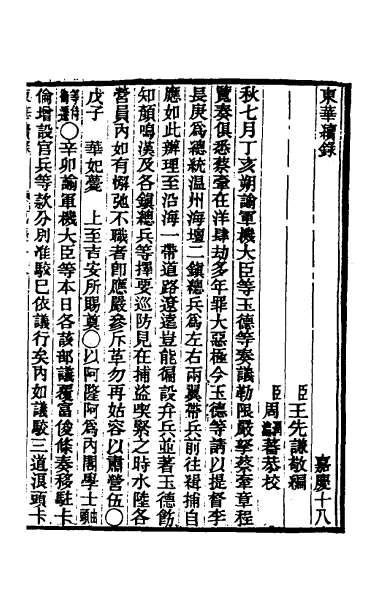 東華續錄　嘉慶十八
臣王先謙敬編
臣周潤蕃恭校
秋七月丁亥朔諭軍機大臣等玉德等奏議勒限嚴拏蔡牽章程
覽奏俱悉蔡牽在洋肆劫多年罪大惡極今玉德等請以提督李
長庚為總統温州海壇二鎮總兵為左右兩翼帶兵前往緝捕自
應如此辦理至沿海一帶道路遼遠豈能徧設弁兵並著玉德飭
知顏鳴漢及各鎮總兵等擇要巡防見在捕盜喫緊之時水陸各
營員內如有懈弛不職者卽應嚴參斥革勿再姑容以肅營伍○
戊子　華妃薨　上至吉安所賜奠○以阿隆阿為內閣學士由頭
等侍衞遷○辛卯諭軍機大臣等本日各該部議覆富俊條奏移駐卡
倫增設官兵等款分別准駁已依議行矣內如議駁三道浪頭卡